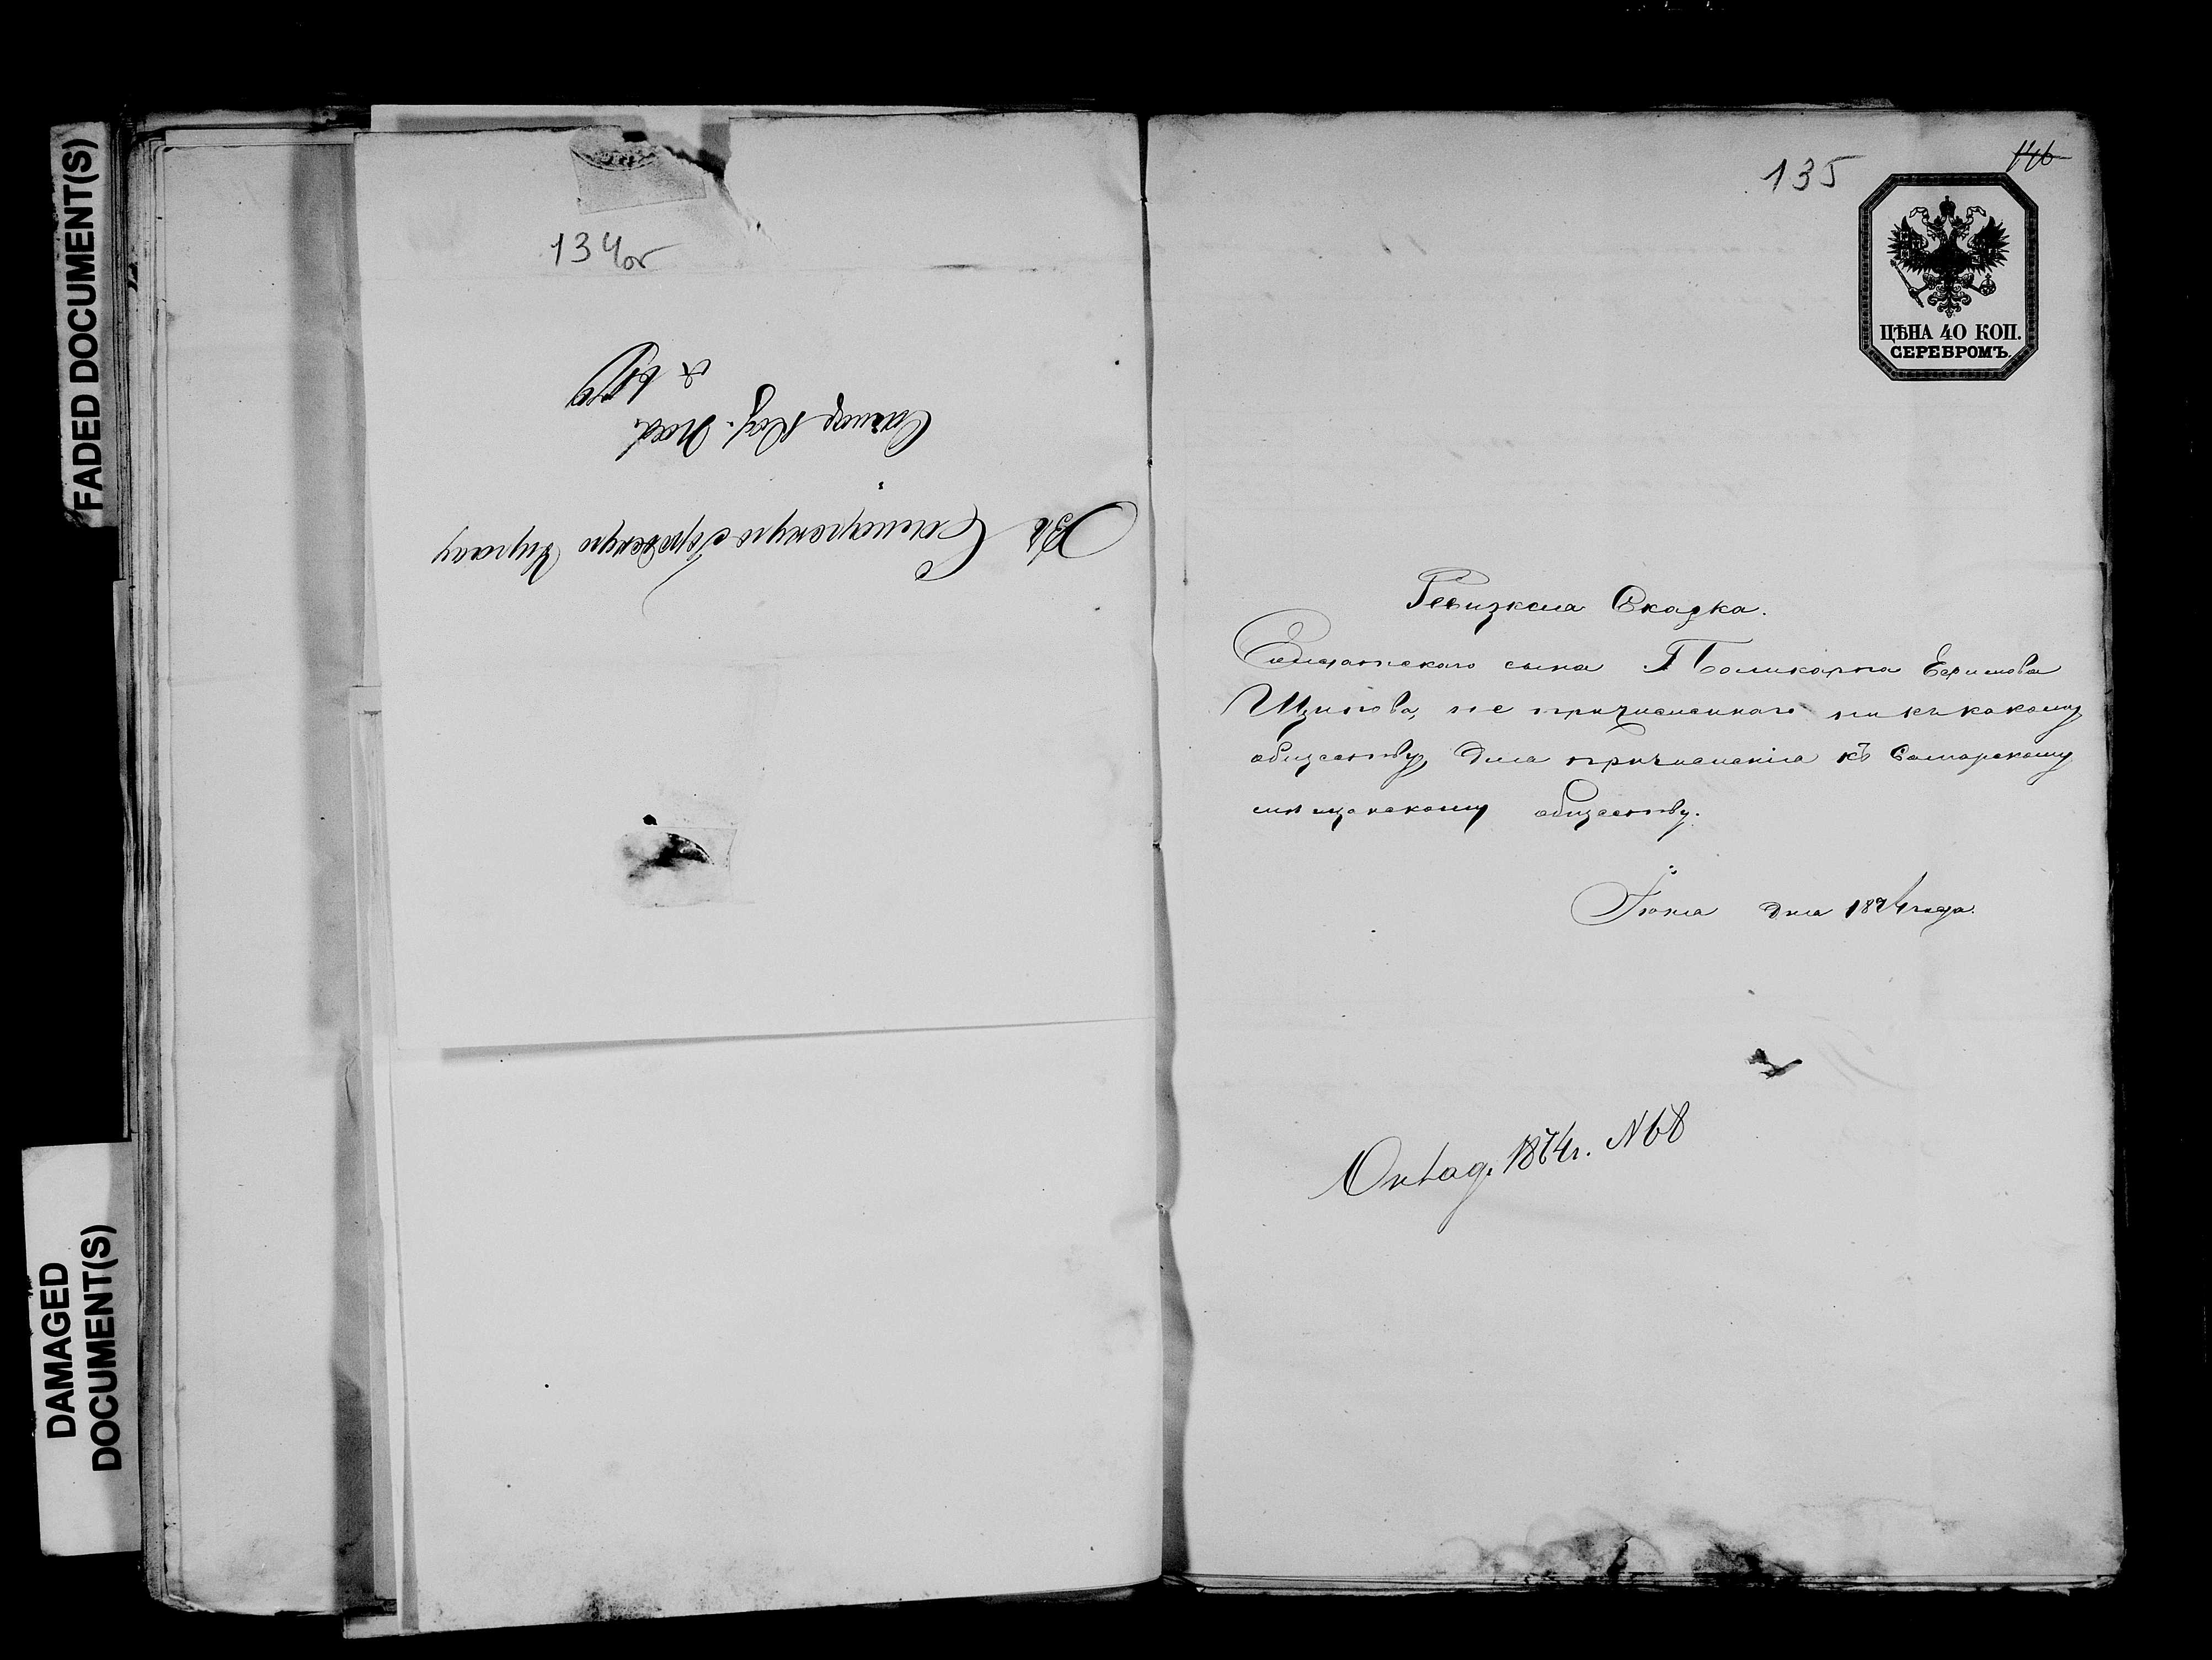 FADED DOCUMENT(S)
DAMAGED
DOCUMENT(S)
134об
Въ Самарскую Городскую Управу
Самар. Каз. Пал.
135
146
ЦѢНА 40 КОП.
СЕРЕБРОМЪ.
Ревизская Сказка.
Солдатскаго сына Поликарпа Ефимова
не причисленнаго ни къ какому
обществу, для причисленія къ Самарскому
мѣщанскому обществу.
Іюня дня 1874 года.
Оклад. 1874 г. N 68